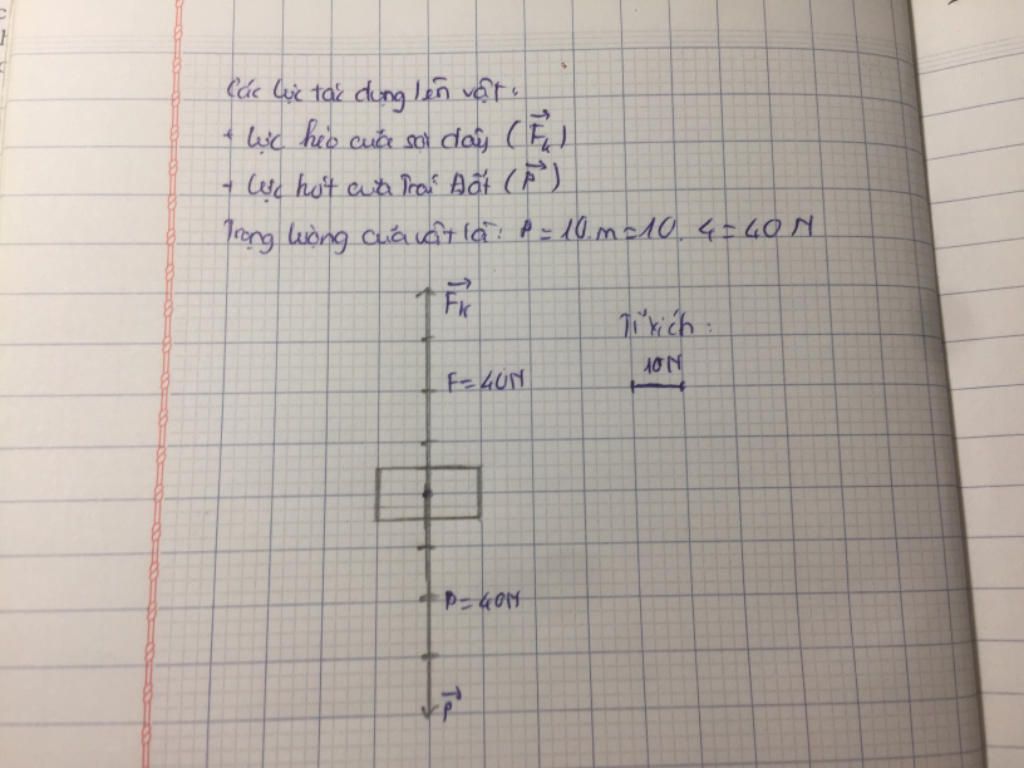 Các lực tác dụng lên vật:
+ Lực kéo của sợi dây (F⃗k)
+ Lực hút của Trái Đất (P⃗)
Trọng lượng của vật là: P = 10.m = 10. 4 = 40 N
F⃗k
Tỉ xích:
10N
F = 40N
P = 40N
P⃗